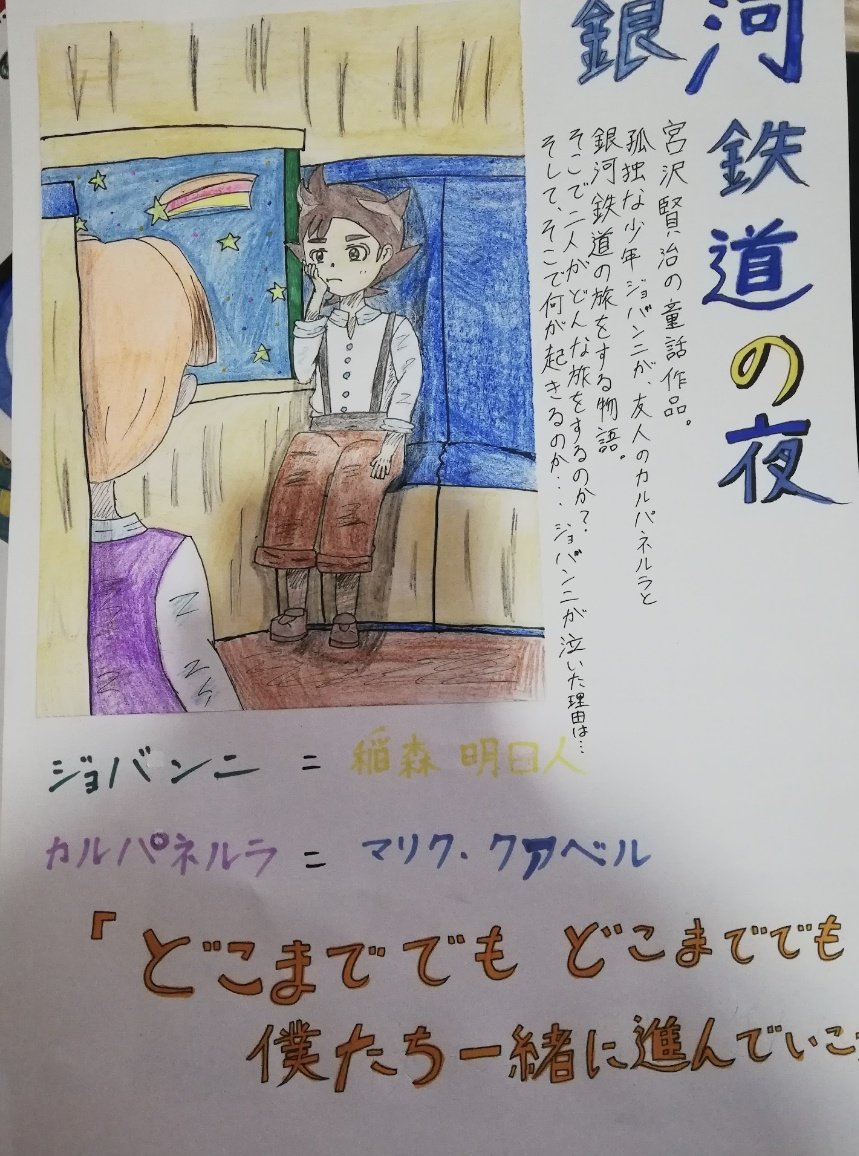 銀河
鉄道の夜
宮沢賢治の童話作品。
孤独な少年ジョバンニが、友人のカルパネルラと
銀河鉄道の旅をする物語。
そこで二人がどんな旅をするのか?
そして、そこで何が起きるのか…ジョバンニが泣いた理由は…
ジョバンニ = 稲森 明日人
カルパネルラ = マリク・クァベル
「どこまででも どこまででも
僕たち一緒に進んでいこ